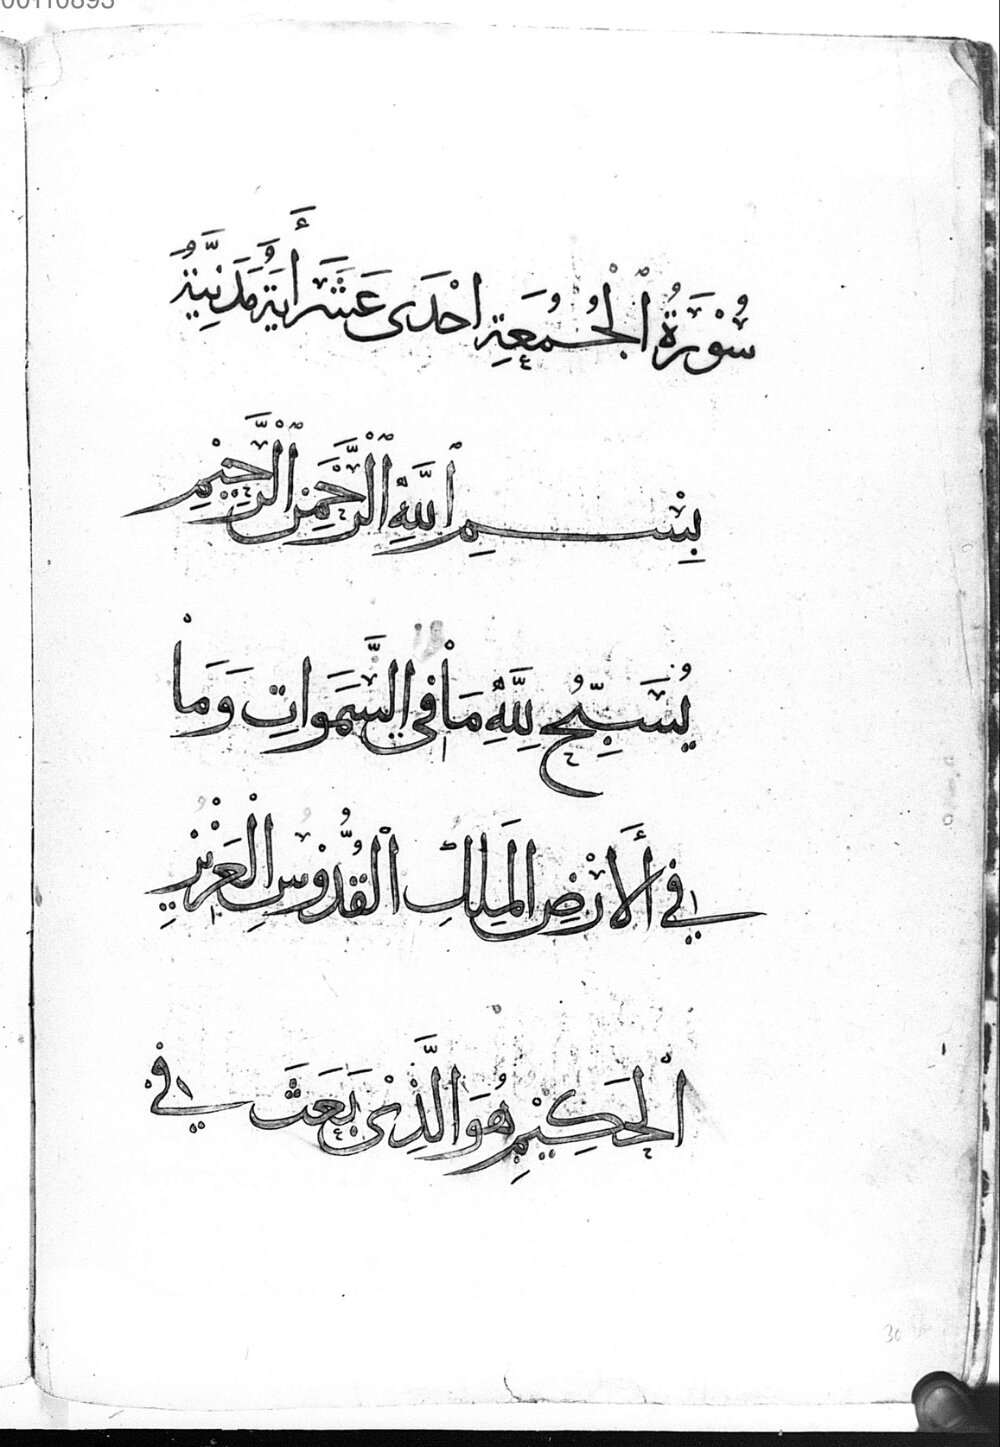 00110893
سُوْرَةُ الْجُمُعَةِ احْدَى عَشَرَ أَيَةً مَدَنِيَّةٌ
بِسْمِ اللَّهِ الرَّحْمَنِ الرَّحِيْمِ
يُسَبِّحُ لِلَّهِ مَا فِي السَّمَوَاتِ وَمَا
فِي الْأَرْضِ الْمَلِكِ الْقُدُّوْسِ الْعَزِيْزِ
الْحَكِيْمِ هُوَ الَّذِىْ بَعَثَ فِي
30